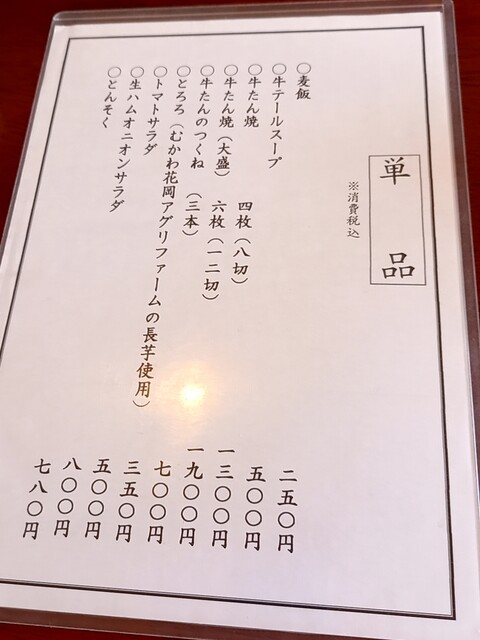 単品
※消費税込
〇麦飯 二五〇円
〇牛テールスープ 五〇〇円
〇牛たん焼 四枚（八切） 一三〇〇円
〇牛たん焼（大盛） 六枚（一二切） 一九〇〇円
〇牛たんのつくね （三本） 七〇〇円
〇とろろ（むかわ花岡アグリファームの長芋使用） 三五〇円
〇トマトサラダ 五〇〇円
〇生ハムオニオンサラダ 八〇〇円
〇とんそく 七八〇円